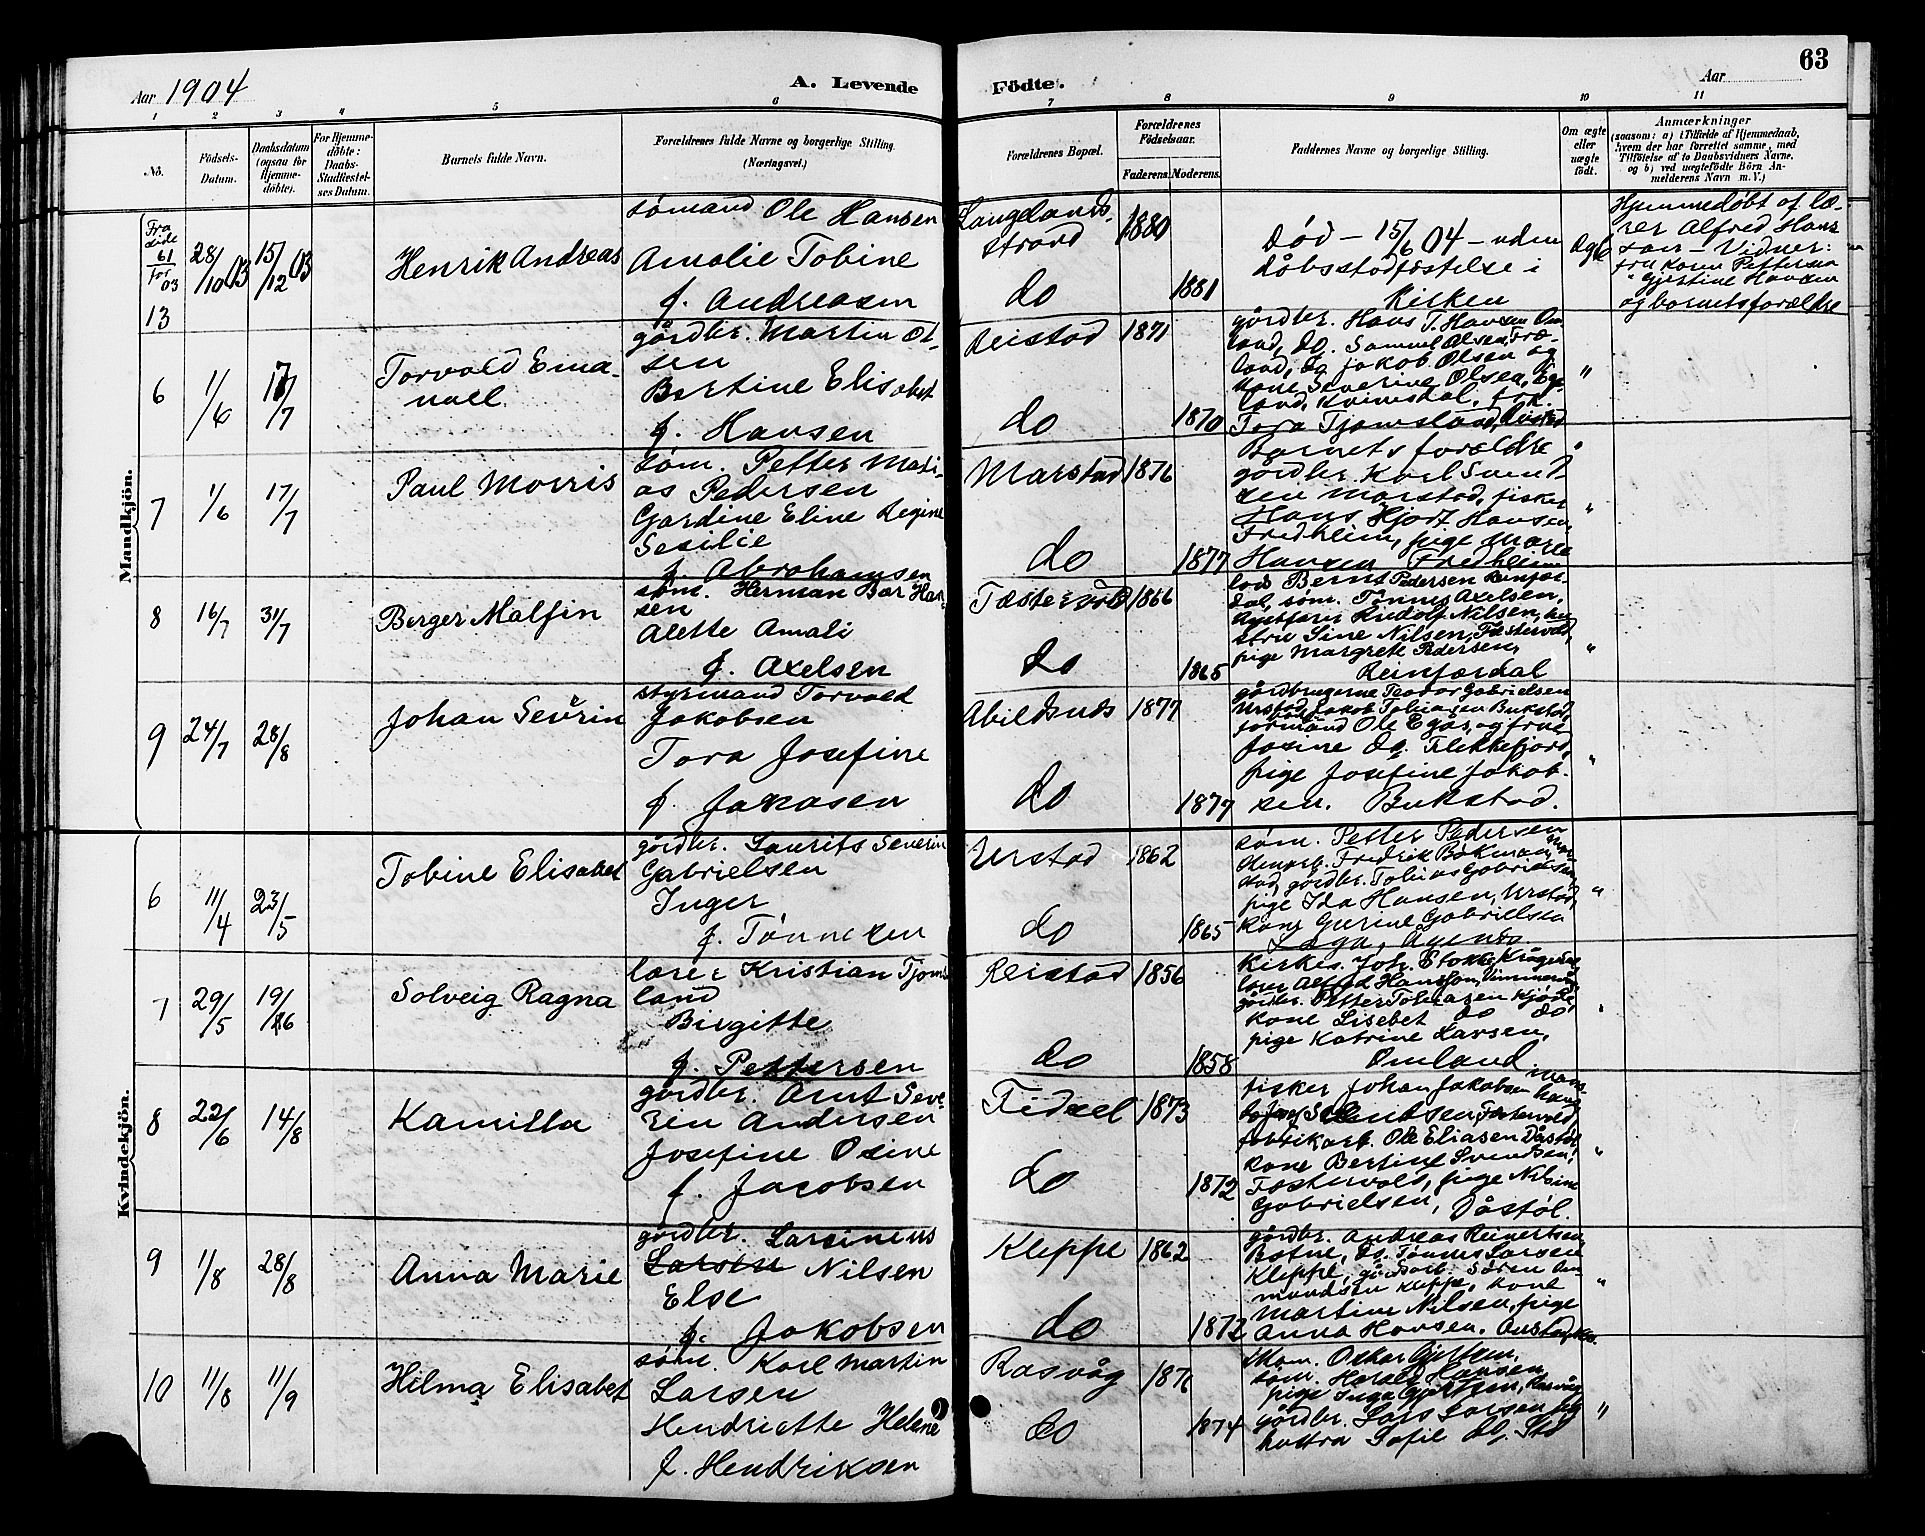 63
Aar 1904
A. Levende Födte.
Aar
1 2 3 4 5 6 7 8 9 10 11
No.
Födsels-Datum.
Daabsdatum (ogsaa for Hjemme-döbte).
For Hjemme-döbte: Daabs-Stadfæstel-ses Datum.
Barnets fulde Navn.
Forældrenes fulde Navne og borgerlige Stilling. (Næringsvei.)
Forældrenes Bopæl.
Forældrenes Födselsaar.
Faderens. Moderens.
Faddernes Navne og borgerlige Stilling.
Om ægte eller uægte födt.
Anmærkninger
(saasom: a) i Tilfælde af Hjemmedaab,
hvem der har forrettet samme, med
Tilföielse af to Daabsvidners Navne,
og b) ved uægtefödte Börn An-
melderens Navn m. V.)
Mandkjön.
Fra side 61 for 03
13
28/10 03
15/12 03
Henrik Andreas
sømand Ole Hansen
Amalie Tobine
f. Andreasen
Langelands-
strand
do
1880
1881
Død – 15/6 04 – uden
dåbsstadfæstelse i
Kirken
Hjemmedøbt af læ-
rer Alfred Hans
son – Vidner:
fru Karen Pettersen
" Gjertine Hansen
og barnets forældre
6
1/6
17/7
Torvald Ema-
nuel
gårdbr. Martin Ol-
sen
Bertine Elisabet
f. Hansen
Reistad
do
1871
1870
gårdbr. Hans T. Hansen Om-
land, do. Samuel Olsen, Frø-
land, do Jakob Olsen og
kone Severine Olsen, Ege-
land, Kvinesdal, frk.
Tora Tjomsland, Reistad
"
7
1/6
17/7
Paul Morris
søm. Petter Mati-
as Pedersen
Gardine Eline Regine
Sesilie
f. Abrahamsen
Marstad
do
1876
1877
Barnets forældre
gårdbr. Karl Svend-
sen Marstad, fisker
Hans Hjort Hansen
Fredheim, pige Marie
Hansen Fredheim
"
8
16/7
31/7
Berger Malfin
søm. Herman Bar Han-
sen
Alette Amali
f. Axelsen
Fæstervold
do
1866
1865
lods Bernt Pedersen Reinfæl-
dal, søm. Tønnes Axelsen,
Rudolf Nilsen, hu-
stru Sine Nilsen, Fæstervold,
pige Margrete Pedersen,
Reinfældal
"
9
24/7
28/8
Johan Sevrin
styrmand Torvald
Jakobsen
Tora Josefine
f. Jakobsen
Abilsnes
do
1877
1877
gårdbrugerne Teodor Gabrielsen
Urstad, Jakob Tobiasen Bukstad,
formand Ole Egås og frue
Josine do. Flekkefjord,
pige Josefine Jakob-
sen. Bukstad.
"
Kvindekjön.
6
11/4
23/5
Tobine Elisabet
gårdbr. Laurits Severin
Gabrielsen
Inger
f. Tønnesen
Urstad
do
1862
1865
søm. Petter Pedersen
Fredrik Bøkman,
gårdbr. Tobias Gabrielsen,
pige Ida Hansen, Urstad,
kone Gurine Gabrielsen
Løga, Agenes
"
7
29/5
19/6
Solveig Ragna
lærer Kristian Tjoms
land
Birgitte
f. Pettersen
Reistad
do
1856
1858
kirkes. Joh. Stokke
lærer Alfred Hansson,
gårdbr. Petter Tobiasen Kjøde,
kone Lisebet do do
pige Katrine Larsen,
Omland
"
8
22/6
14/8
Kamilla
gårdbr. Arnt Seve-
rin Andersen
Josefine Osine
f. Jacobsen
Fidsel
do
1873
1872
fisker Johan Jakobsen
Svendsen, Fæstervold
fabrikarb. Ole Eliasen Dåstøl,
kone Bertine Svendsen,
Fæstervold, pige Nilsine
Gabrielsen, Dåstøl.
"
9
1/8
28/8
Anna Marie
gårdbr. Larsinius
Larsen Nilsen
Else
f. Jakobsen
Kleppe
do
1862
1872
gårdbr. Andreas Reinertsen
Botne, do. Tønnes Larsen
Kleppe, gårdarb. Søren Am-
mundsen Kleppe, kone
Martine Nilsen, pige
Anna Hansen.
"
10
11/8
11/9
Hilma Elisabet
søm. Karl Martin
Larsen
Hendriette Helene
f. Hendriksen
Rasvåg
do
1876
1874
skom. Oskar Gjertsen,
søm. Harald Hansen
pige Inga Gjertsen, Rasvåg
gårdbr. Lars Larsen og
hustru Sofie do.
"